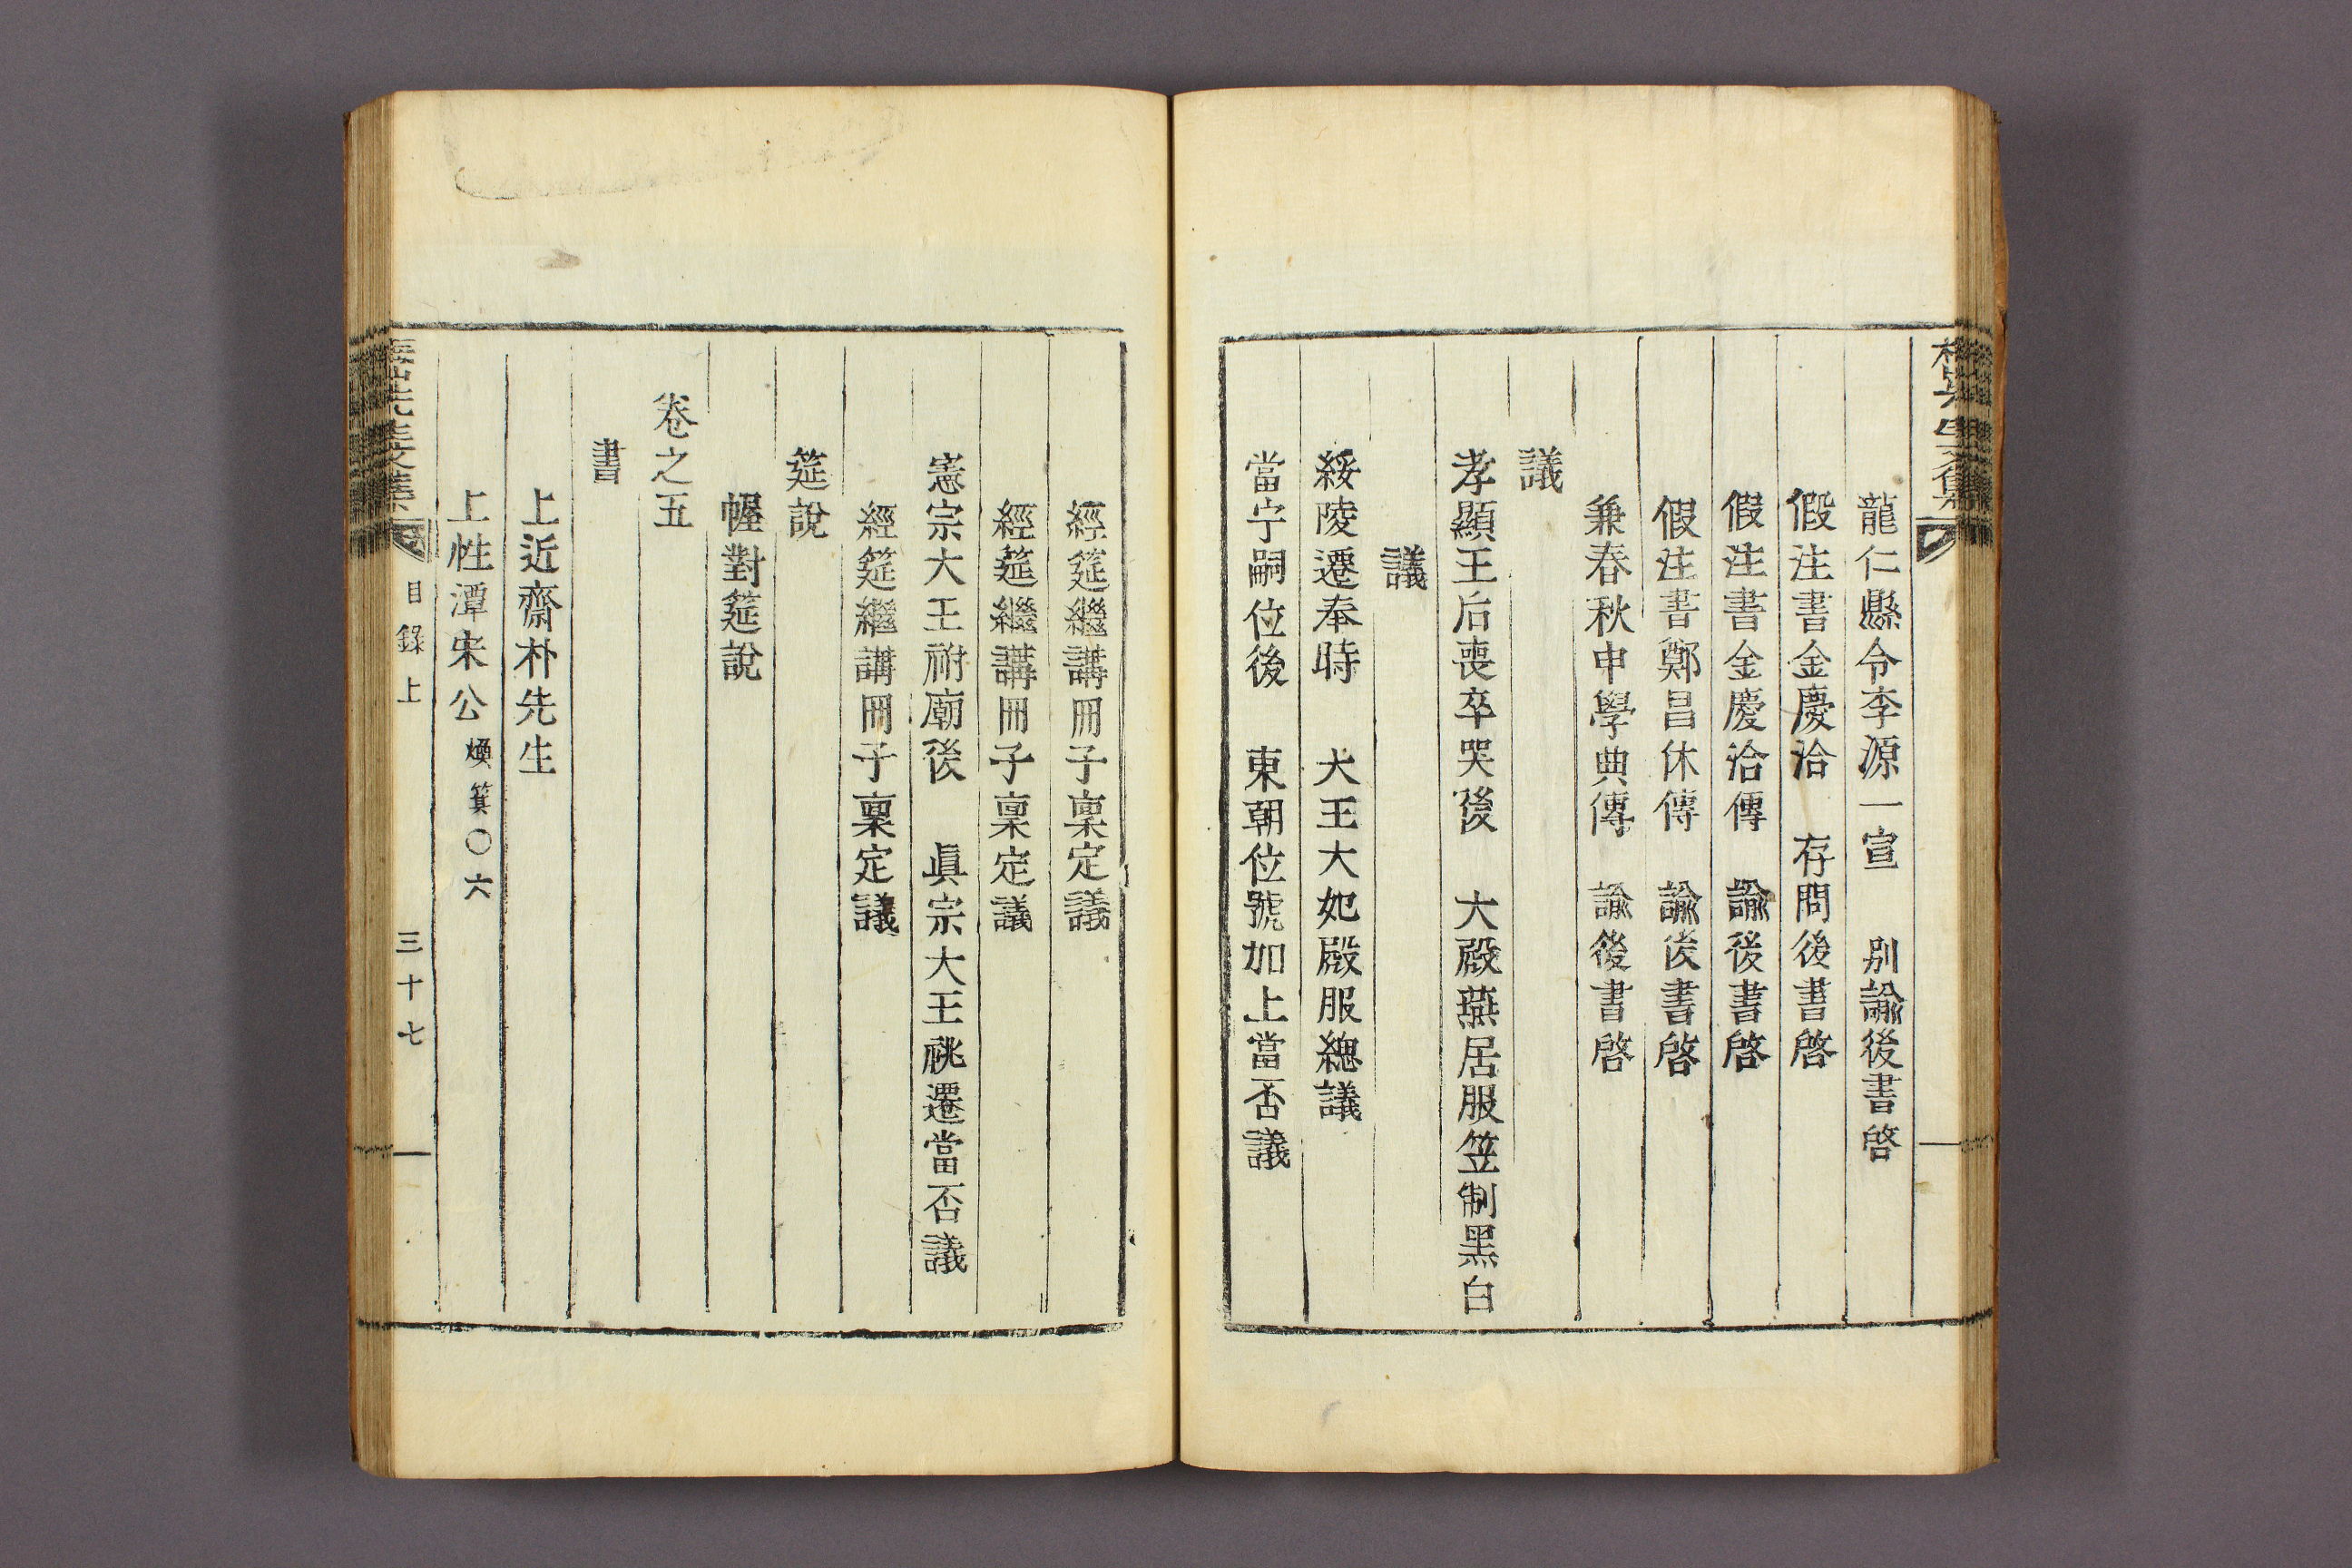 龍仁縣令李源一宣 別諭後書啓
假注書金慶洽 存問後書啓
假注書金慶洽傳 諭後書啓
假注書鄭昌休傳 諭後書啓
兼春秋申學典傳 諭後書啓
議
孝顯王后喪卒哭後 大殿燕居服笠制黑白
議
綏陵遷奉時 大王大妃殿服緦議
當宁嗣位後 東朝位號加上當否議
經筵繼講冊子稟定議
經筵繼講冊子稟定議
憲宗大王祔廟後 眞宗大王祧遷當否議
經筵繼講冊子稟定議
筵說
幄對筵說
卷之五
書
上近齋朴先生
上性潭宋公煥箕〇六
梅山先生文集 目錄上 三十七